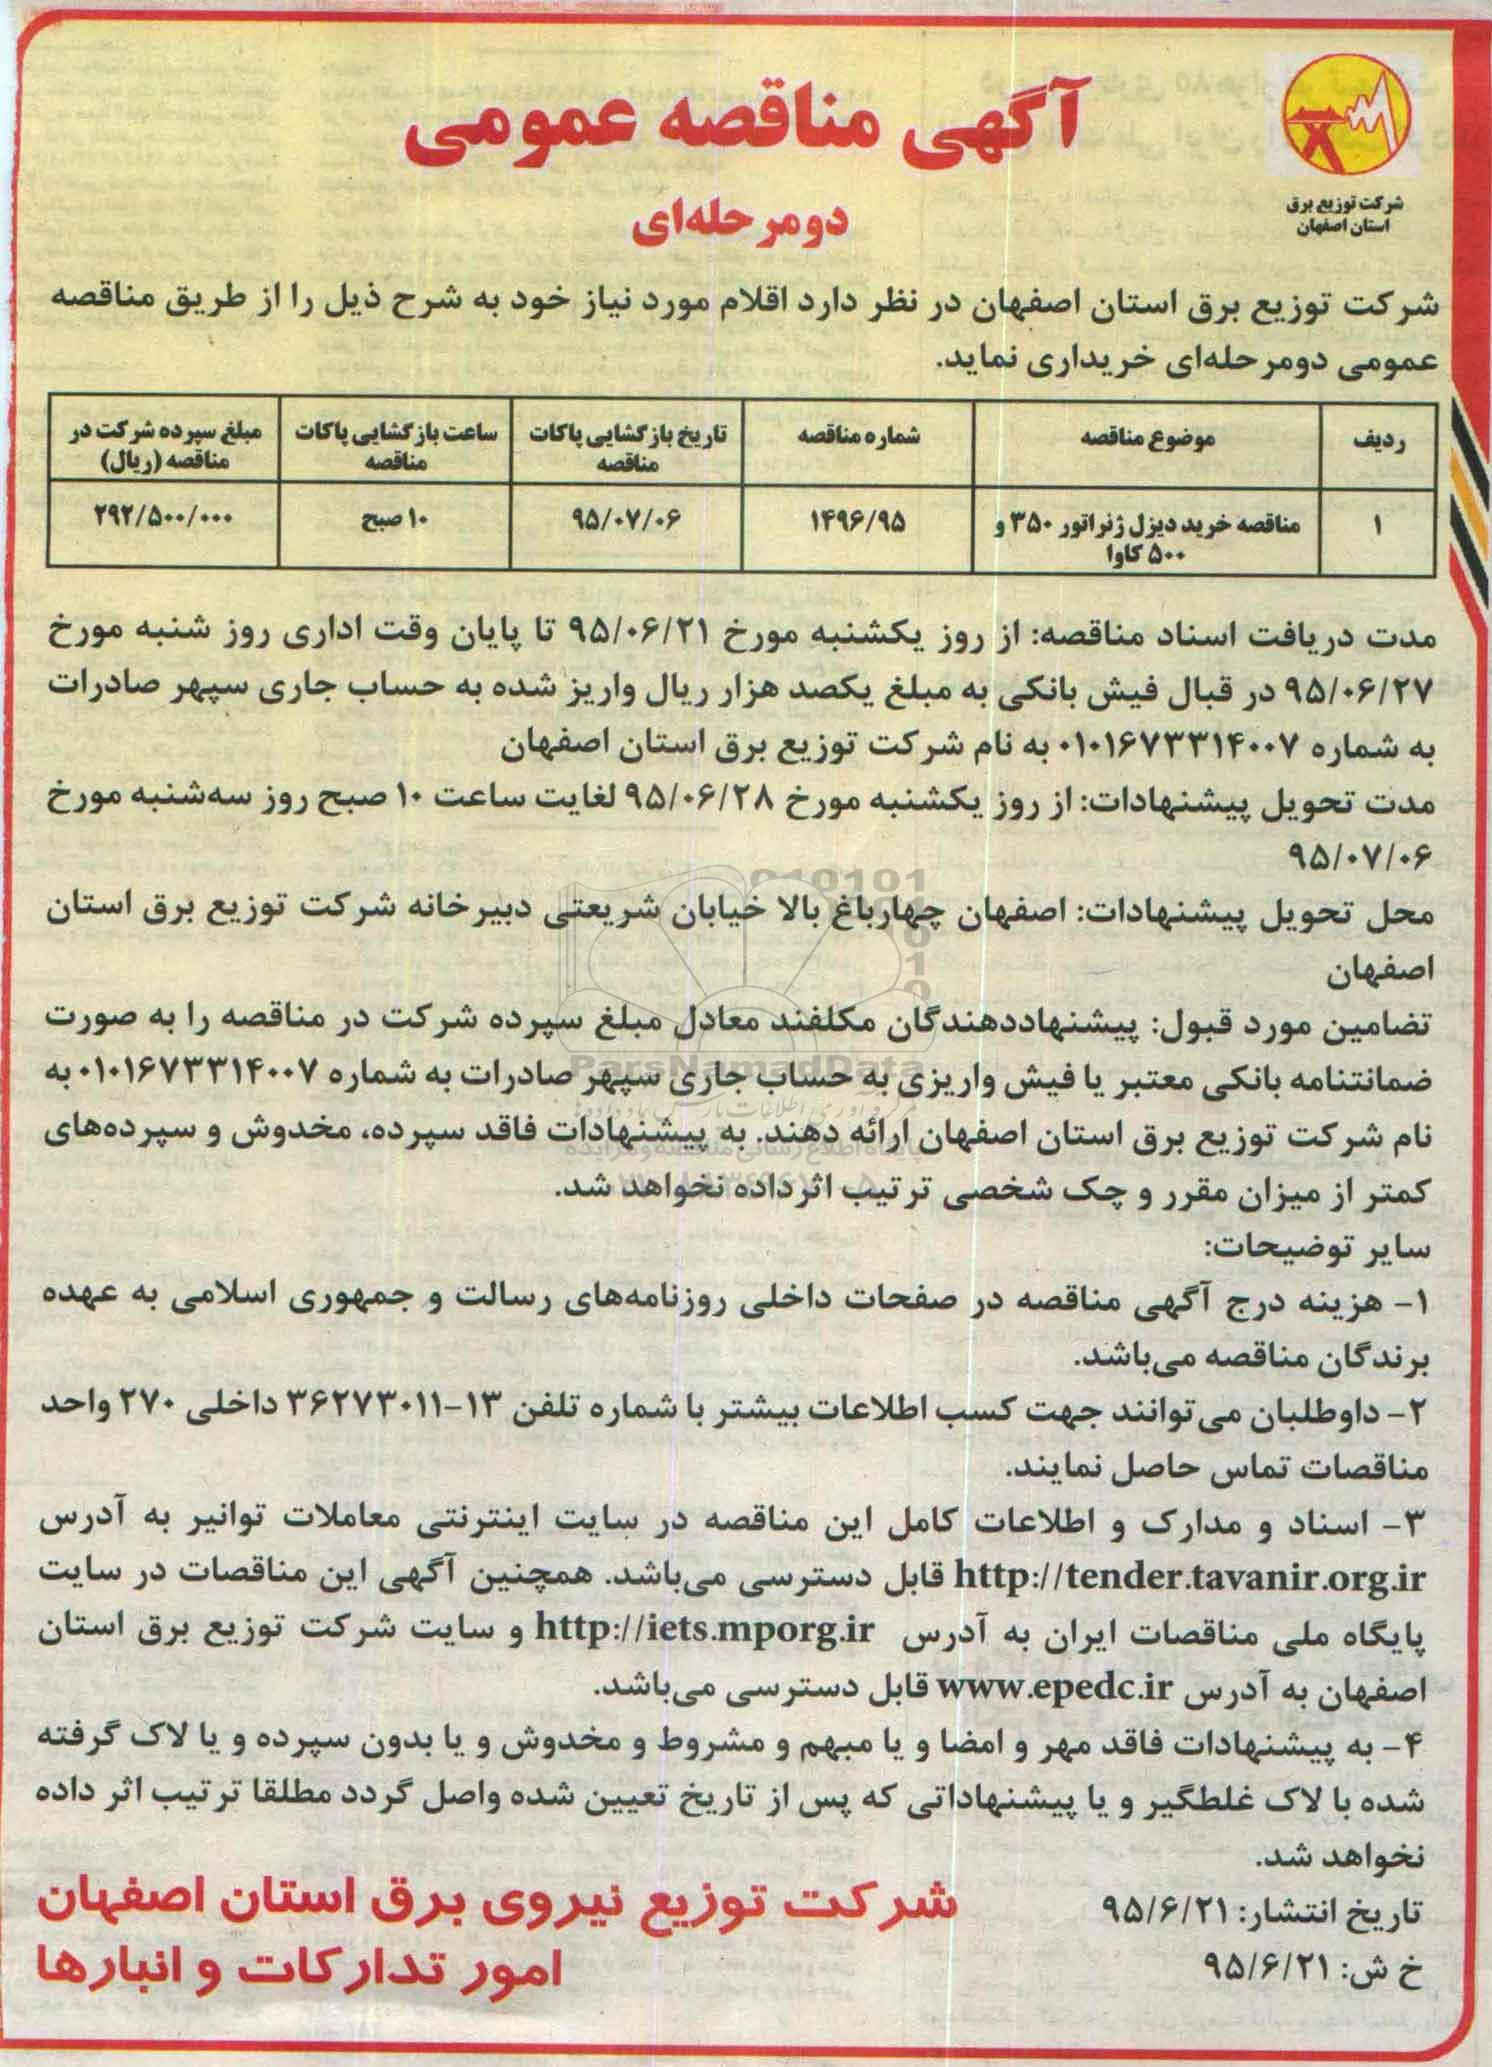 آگهی مناقصه عمومی
دومرحله‌ای
شرکت توزیع برق
استان اصفهان
شرکت توزیع برق استان اصفهان در نظر دارد اقلام مورد نیاز خود به شرح ذیل را از طریق مناقصه
عمومی دومرحله‌ای خریداری نماید.
ردیف | موضوع مناقصه | شماره مناقصه | تاریخ بازگشایی پاکات مناقصه | ساعت بازگشایی پاکات مناقصه | مبلغ سپرده شرکت در مناقصه (ریال)
۱ | مناقصه خرید دیزل ژنراتور ۳۵۰ و ۵۰۰ کاوا | ۱۴۹۶/۹۵ | ۹۵/۰۷/۰۶ | ۱۰ صبح | ۲۹۲/۵۰۰/۰۰۰
مدت دریافت اسناد مناقصه: از روز یکشنبه مورخ ۹۵/۰۶/۲۱ تا پایان وقت اداری روز شنبه مورخ
۹۵/۰۶/۲۷ در قبال فیش بانکی به مبلغ یکصد هزار ریال واریز شده به حساب جاری سپهر صادرات
به شماره ۰۱۰۱۶۷۳۳۱۴۰۰۷ به نام شرکت توزیع برق استان اصفهان
مدت تحویل پیشنهادات: از روز یکشنبه مورخ ۹۵/۰۶/۲۸ لغایت ساعت ۱۰ صبح روز سه‌شنبه مورخ
۹۵/۰۷/۰۶
محل تحویل پیشنهادات: اصفهان چهارباغ بالا خیابان شریعتی دبیرخانه شرکت توزیع برق استان
اصفهان
تضامین مورد قبول: پیشنهاددهندگان مکلفند معادل مبلغ سپرده شرکت در مناقصه را به صورت
ضمانتنامه بانکی معتبر یا فیش واریزی به حساب جاری سپهر صادرات به شماره ۰۱۰۱۶۷۳۳۱۴۰۰۷ به
نام شرکت توزیع برق استان اصفهان ارائه دهند. به پیشنهادات فاقد سپرده، مخدوش و سپرده‌های
کمتر از میزان مقرر و چک شخصی ترتیب اثر داده نخواهد شد.
سایر توضیحات:
۱- هزینه درج آگهی مناقصه در صفحات داخلی روزنامه‌های رسالت و جمهوری اسلامی به عهده
برندگان مناقصه می‌باشد.
۲- داوطلبان می‌توانند جهت کسب اطلاعات بیشتر با شماره تلفن ۱۳-۳۶۲۷۳۰۱۱ داخلی ۲۷۰ واحد
مناقصات تماس حاصل نمایند.
۳- اسناد و مدارک و اطلاعات کامل این مناقصه در سایت اینترنتی معاملات توانیر به آدرس
http://tender.tavanir.org.ir قابل دسترسی می‌باشد. همچنین آگهی این مناقصات در سایت
پایگاه ملی مناقصات ایران به آدرس http://iets.mporg.ir و سایت شرکت توزیع برق استان
اصفهان به آدرس www.epedc.ir قابل دسترسی می‌باشد.
۴- به پیشنهادات فاقد مهر و امضا و یا مبهم و مشروط و مخدوش و یا بدون سپرده و یا لاک گرفته
شده با لاک غلطگیر و یا پیشنهاداتی که پس از تاریخ تعیین شده واصل گردد مطلقا ترتیب اثر داده
نخواهد شد.
تاریخ انتشار: ۹۵/۶/۲۱
خ ش: ۹۵/۶/۲۱
شرکت توزیع نیروی برق استان اصفهان
امور تدارکات و انبارها
ParsNamadData